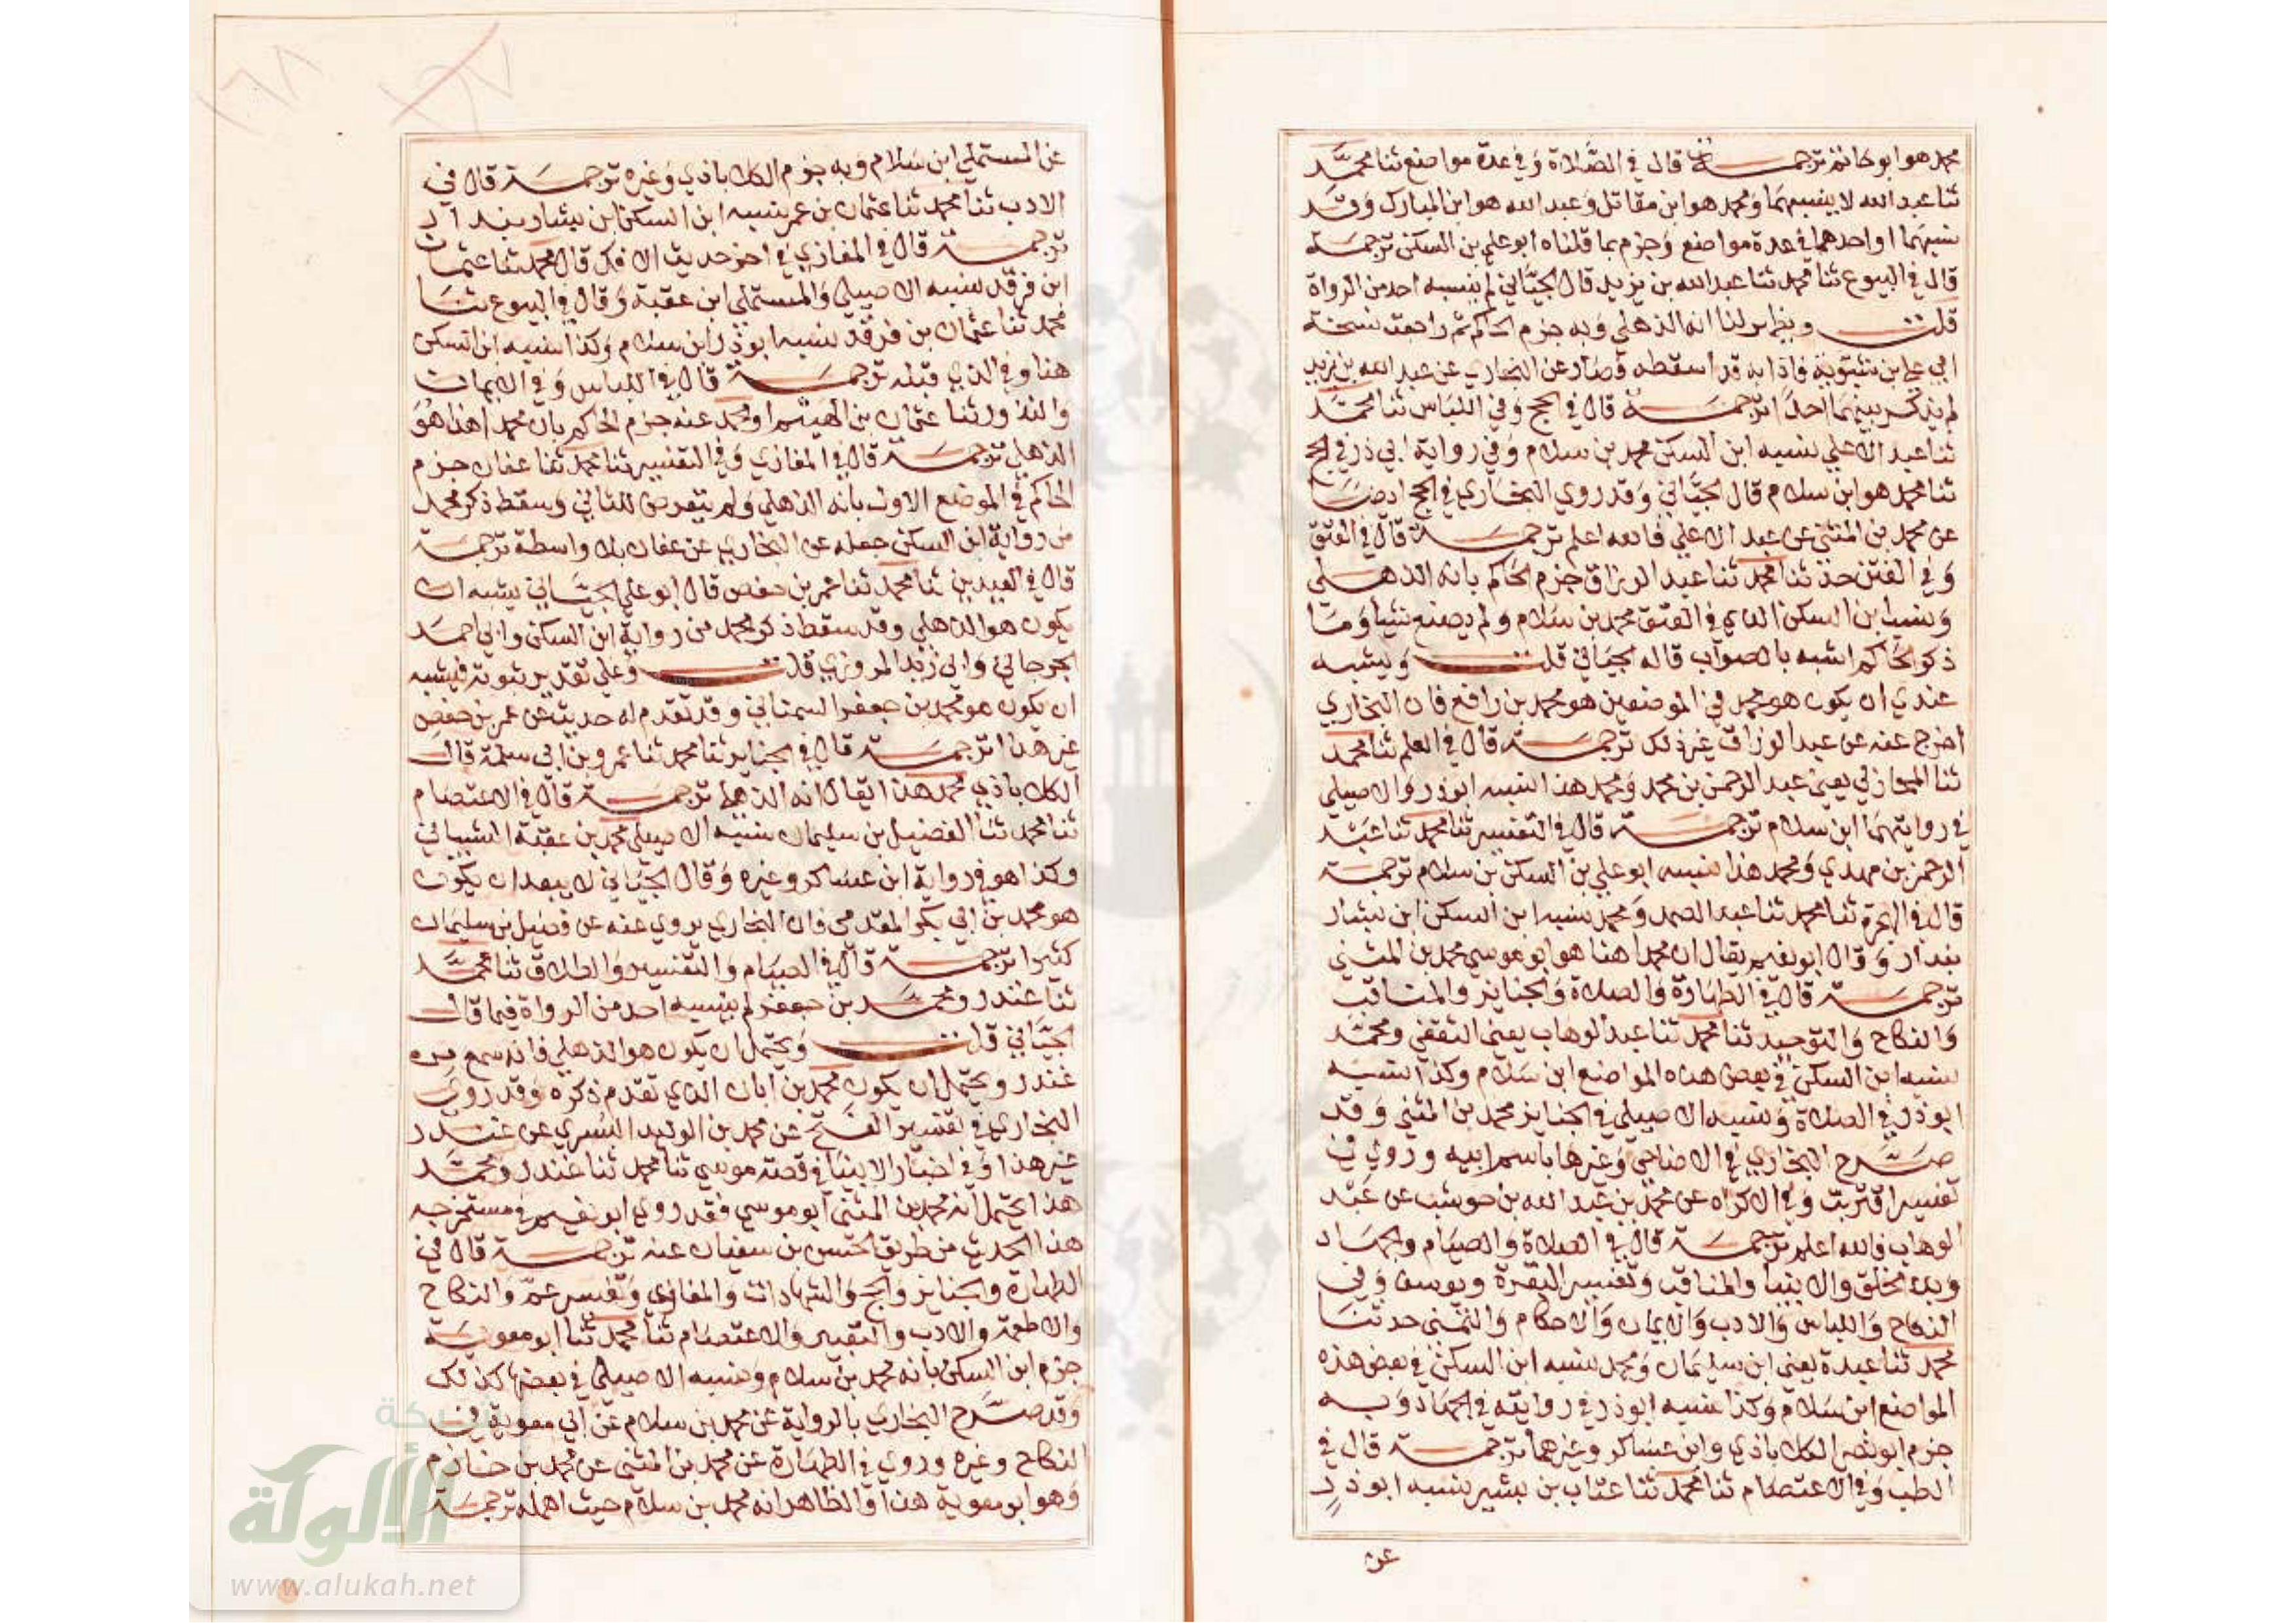 محمد هو ابو حاتم ترجمـــة قال في الصلاة وفي عدة مواضع ثنا محمد
ثنا عبد الله لا ينسبهما ومحمد هو ابن مقاتل وعبد الله هو ابن المبارك وقد
نسبهما او احدهما في عدة مواضع وجزم بما قلناه ابو علي بن السكن ترجمـة
قال في البيوع ثنا محمد ثنا عبد الله بن يزيد قال الجياني لم ينسبه احد من الرواة
قلت لنا انه الذهلي وبه جزم الحاكم ثم راجعت نسخة
ابي علي بن شبوية فاذا به قد اسقطه وصار عن البخاري عن عبد الله بن يزيد
لم يذكر بينهما احدا ترجمـة قال في الحج وفي اللباس ثنا محمد
ثنا عبد الاعلي نسبه ابن السكن محمد بن سلام وفي رواية ابي ذر في الحج
ثنا محمد هو ابن سلام قال الجياني وقد روي البخاري في الحج ايضا
عن محمد بن المثني عن عبد الاعلي فالله اعلم ترجمـة قال في العتق
وفي الفتن حدثنا محمد ثنا عبد الرزاق جزم الحاكم بانه الذهلي
ونسب ابن السكن الذي في العتق محمد بن سلام ولم يصنع شيا وما
ذكر الحاكم اشبه بالصواب قاله الجياني قلت ويشبه
عندي ان يكون هو محمد في الموضعين هو محمد بن رافع فان البخاري
اخرج عنه عن عبد الرزاق غير ذلك ترجمـة قال في العلم ثنا محمد
ثنا المحاربي يعني عبد الرحمن بن محمد ومحمد هذا نسبه ابو ذر والاصيلي
في روايتهما ابن سلام ترجمـة قال في التفسير ثنا محمد ثنا عبد
الرحمن بن مهدي ومحمد هذا نسبه ابو علي بن السكن بن سلام ترجمـة
قال في الهجرة ثنا محمد ثنا عبد الصمد ومحمد نسبه ابن السكن ابن بشار
بندار وقال ابو نعيم يقال ان محمدا هنا هو ابو موسي محمد بن المثني
ترجمـة قال في الطهارة والصلاة والجنايز والمناقب
والنكاح والتوحيد ثنا محمد ثنا عبد الوهاب يعني الثقفي ومحمد
نسبه ابن السكن في بعض هذه المواضع ابن سلام وكذا نسبه
ابو ذر في الصلاة ونسبه الاصيلي في الجنايز محمد بن المثني وقد
صرح البخاري في الاضاحي وغيرها باسم ابيه وروي في
تفسير اقتربت وفي الاكراه عن محمد بن عبد الله بن حوشب عن عبد
الوهاب فالله اعلم ترجمـة قال في الصلاة والصيام والجهاد
وبدء الخلق والانبيا والمناقب وتفسير البقرة ويوسف وفي
النكاح واللباس والادب والايمان والاحكام والتمني حدثنا
محمد ثنا عبدة يعني ابن سليمان ومحمد نسبه ابن السكن في بعض هذه
المواضع ابن سلام وكذا نسبه ابو ذر في روايته في الجهاد وبه
جزم ابو نصر الكلاباذي وابن عساكر وغيرهما ترجمـة قال في
الطب وفي الاعتصام ثنا محمد ثنا عتاب بن بشير نسبه ابو ذر
عن
عن المستملي ابن سلام وبه جزم الكلاباذي وغيره ترجمـة قال في
الادب ثنا محمد ثنا عثمان بن عمر نسبه ابن السكن ابن بشار بندار
ترجمـة قال في المغازي في اخر حديث الافك قال محمد ثنا عثمان
ابن فرقد نسبه الاصيلي والمستملي ابن عقبة وقال في البيوع ثنا
محمد ثنا عثمان بن فرقد نسبه ابو ذر ابن سلام وكذا نسبه ابن السكن
هنا وفي الذي قبله ترجمـة قال في اللباس وفي الايمان
والنذور ثنا عثمان بن الهيثم او محمد عنه جزم الحاكم بان محمدا هذا هو
الذهلي ترجمـة قال في المغازي وفي التفسير ثنا محمد ثنا عفان جزم
الحاكم في الموضع الاول بانه الذهلي ولم يتعرض للثاني وسقط ذكر محمد
من رواية ابن السكن جعله عن البخاري عن عفان بلا واسطة ترجمـة
قال في العيدين ثنا محمد ثنا عمر بن حفص قال ابو علي الجياني يشبه ان
يكون هو الذهلي وقد سقط ذكر محمد من رواية ابن السكن وابي احمد
الجرجاني وابي زيد المروزي قلت وعلي تقدير ثبوته فيشبه
ان يكون هو محمد بن جعفر السمناني وقد تقدم له حديث عن عمر بن حفص
غير هذا ترجمـة قال في الجنايز ثنا محمد ثنا عمرو بن ابي سلمة قال
الكلاباذي محمد هذا يقال انه الذهلي ترجمـة قال في الاعتصام
ثنا محمد ثنا الفضيل بن سليمان نسبه الاصيلي محمد بن عقبة الشيباني
وكذا هو في رواية ابن عساكر وغيره وقال الجياني لا يبعد ان يكون
هو محمد بن ابي بكر المقدمي فان البخاري يروي عنه عن فضيل بن سليمان
كثيرا ترجمـة قال في الصيام والتفسير والطلاق ثنا محمد
ثنا غندر ومحمد بن جعفر لم ينسبه احد من الرواة فيما قال
الجياني قلت ويحتمل ان يكون هو الذهلي فانه سمع من
غندر ويحتمل ان يكون محمد بن ابان الذي تقدم ذكره وقد روي
البخاري في تفسير الفتح عن محمد بن الوليد البسري عن غندر
غير هذا وفي اخبار الانبيا في قصة موسي ثنا محمد ثنا غندر ومحمد
هذا يحتمل انه محمد بن المثني ابو موسي فقد روي ابو نعيم في مستخرجه
هذا الحديث من طريق الحسن بن سفيان عنه ترجمـة قال في
الطهارة والجنايز والحج والشهادات والمغازي وتفسير عم والنكاح
والاطعمة والادب والتعبير والاعتصام ثنا محمد ثنا ابو معوية
جزم ابن السكن بانه محمد بن سلام ونسبه الاصيلي في بعضها كذلك
وقد صرح البخاري بالرواية عن محمد بن سلام عن ابي معوية في
النكاح وغيره وروي في الطهارة عن محمد بن المثني عن محمد بن خازم
وهو ابو معوية هذا والظاهر انه محمد بن سلام حيث اهمله ترجمـة
شبكة
الألوكة
www.alukah.net